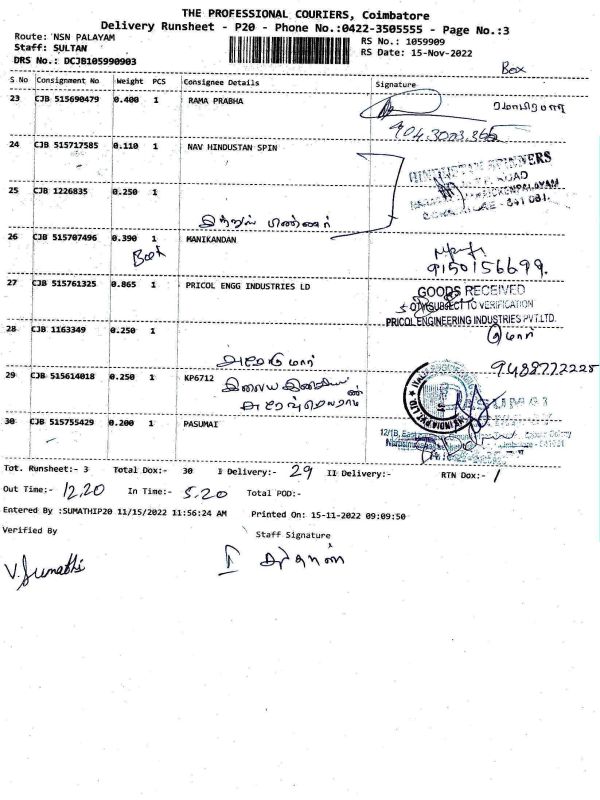 THE PROFESSIONAL COURIERS, Coimbatore
Delivery Runsheet - P20 - Phone No.:0422-3505555 - Page No.:3
Route: NSN PALAYAM
Staff: SULTAN
DRS No.: DCJB105990903
RS No.: 1059909
RS Date: 15-Nov-2022
Box
S No Consignment No Weight PCS Consignee Details Signature
23 CJB 515690479 0.400 1 RAMA PRABHA
ரமாபிரபா
904.3023.366
24 CJB 515717585 0.110 1 NAV HINDUSTAN SPIN
HINDUSTAN SPINNERS
ROAD
25 CJB 1226835 0.250 1
COIMBATORE - 641 031.
26 CJB 515707496 0.390 1 MANIKANDAN
Box
9150156699.
27 CJB 515761325 0.865 1 PRICOL ENGG INDUSTRIES LD
GOODS RECEIVED
SUBJECT TO VERIFICATION
PRICOL ENGINEERING INDUSTRIES PVT.LTD.
28 CJB 1163349 0.250 1
29 CJB 515614018 0.250 1 KP6712
9488772225
30 CJB 515755429 0.200 1 PASUMAI
Tot. Runsheet:- 3 Total Dox:- 30 I Delivery:- 29 II Delivery:- RTN Dox:- 1
Out Time:- 12.20 In Time:- 5.20 Total POD:-
Entered By :SUMATHIP20 11/15/2022 11:56:24 AM Printed On: 15-11-2022 09:09:50
Verified By Staff Signature
V. Sumathi